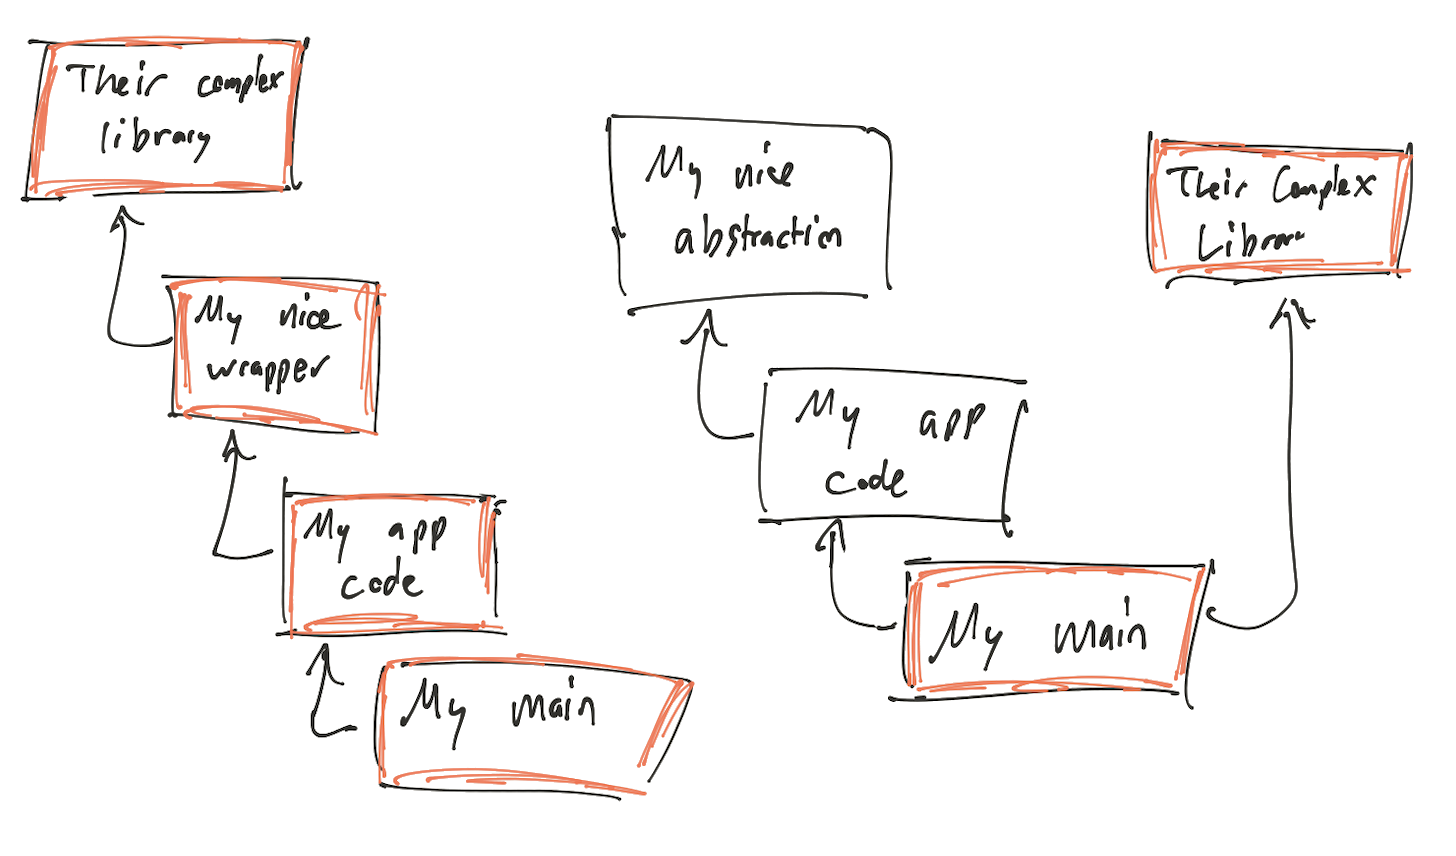 Their complex
library
My nice
wrapper
My app
code
My main
My nice
abstraction
My app
code
My main
Their Complex
Library